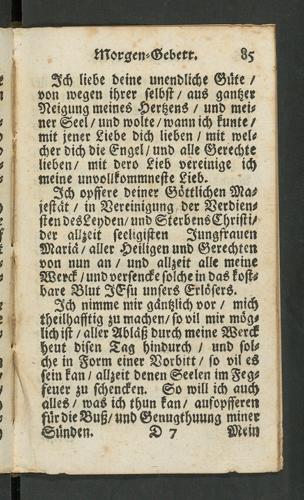 Morgen-Gebett. 85
Ich liebe deine unendliche Güte /
von wegen ihrer selbst / aus gantzer
Neigung meines Hertzens / und mei-
ner Seel / und wolte / wann ich kunte /
mit jener Liebe dich lieben / mit wel-
cher dich die Engel / und alle Gerechte
lieben / mit dero Lieb vereinige ich
meine unvollkommneste Lieb.
Ich opffere deiner Göttlichen Ma-
jestät / in Vereinigung der Verdien-
sten des Leyden / und Sterbens Christi /
der allzeit seeligisten Jungfrauen
Mariä / aller Heiligen und Gerechten
von nun an / und allzeit alle meine
Werck / und versencke solche in das kost-
bare Blut JEsu unsers Erlösers.
Ich nimme mir gäntzlich vor / mich
theilhafftig zu machen / so vil mir mög-
lich ist / aller Abläß durch meine Werck
heut disen Tag hindurch / und sol-
che in Form einer Vorbitt / so vil es
sein kan / allzeit denen Seelen im Feg-
feuer zu schencken. So will ich auch
alles / was ich thun kan / aufopfferen
für die Buß / und Genugthuung miner
Sünden. D 7 Mein